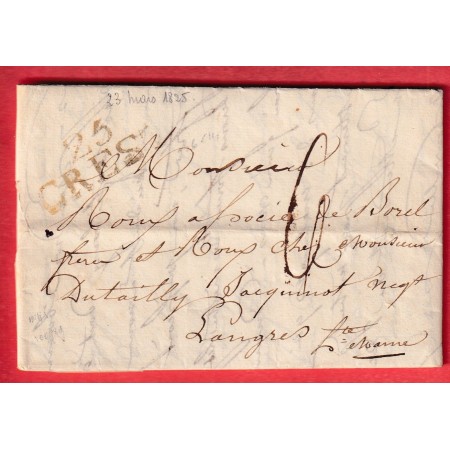 23 mars 1825
25
CREST
Monsieur
Roux associé de Borel
frère et Roux chez Monsieur
Dutailly Jacquinot Negt
Langres hte
Marne